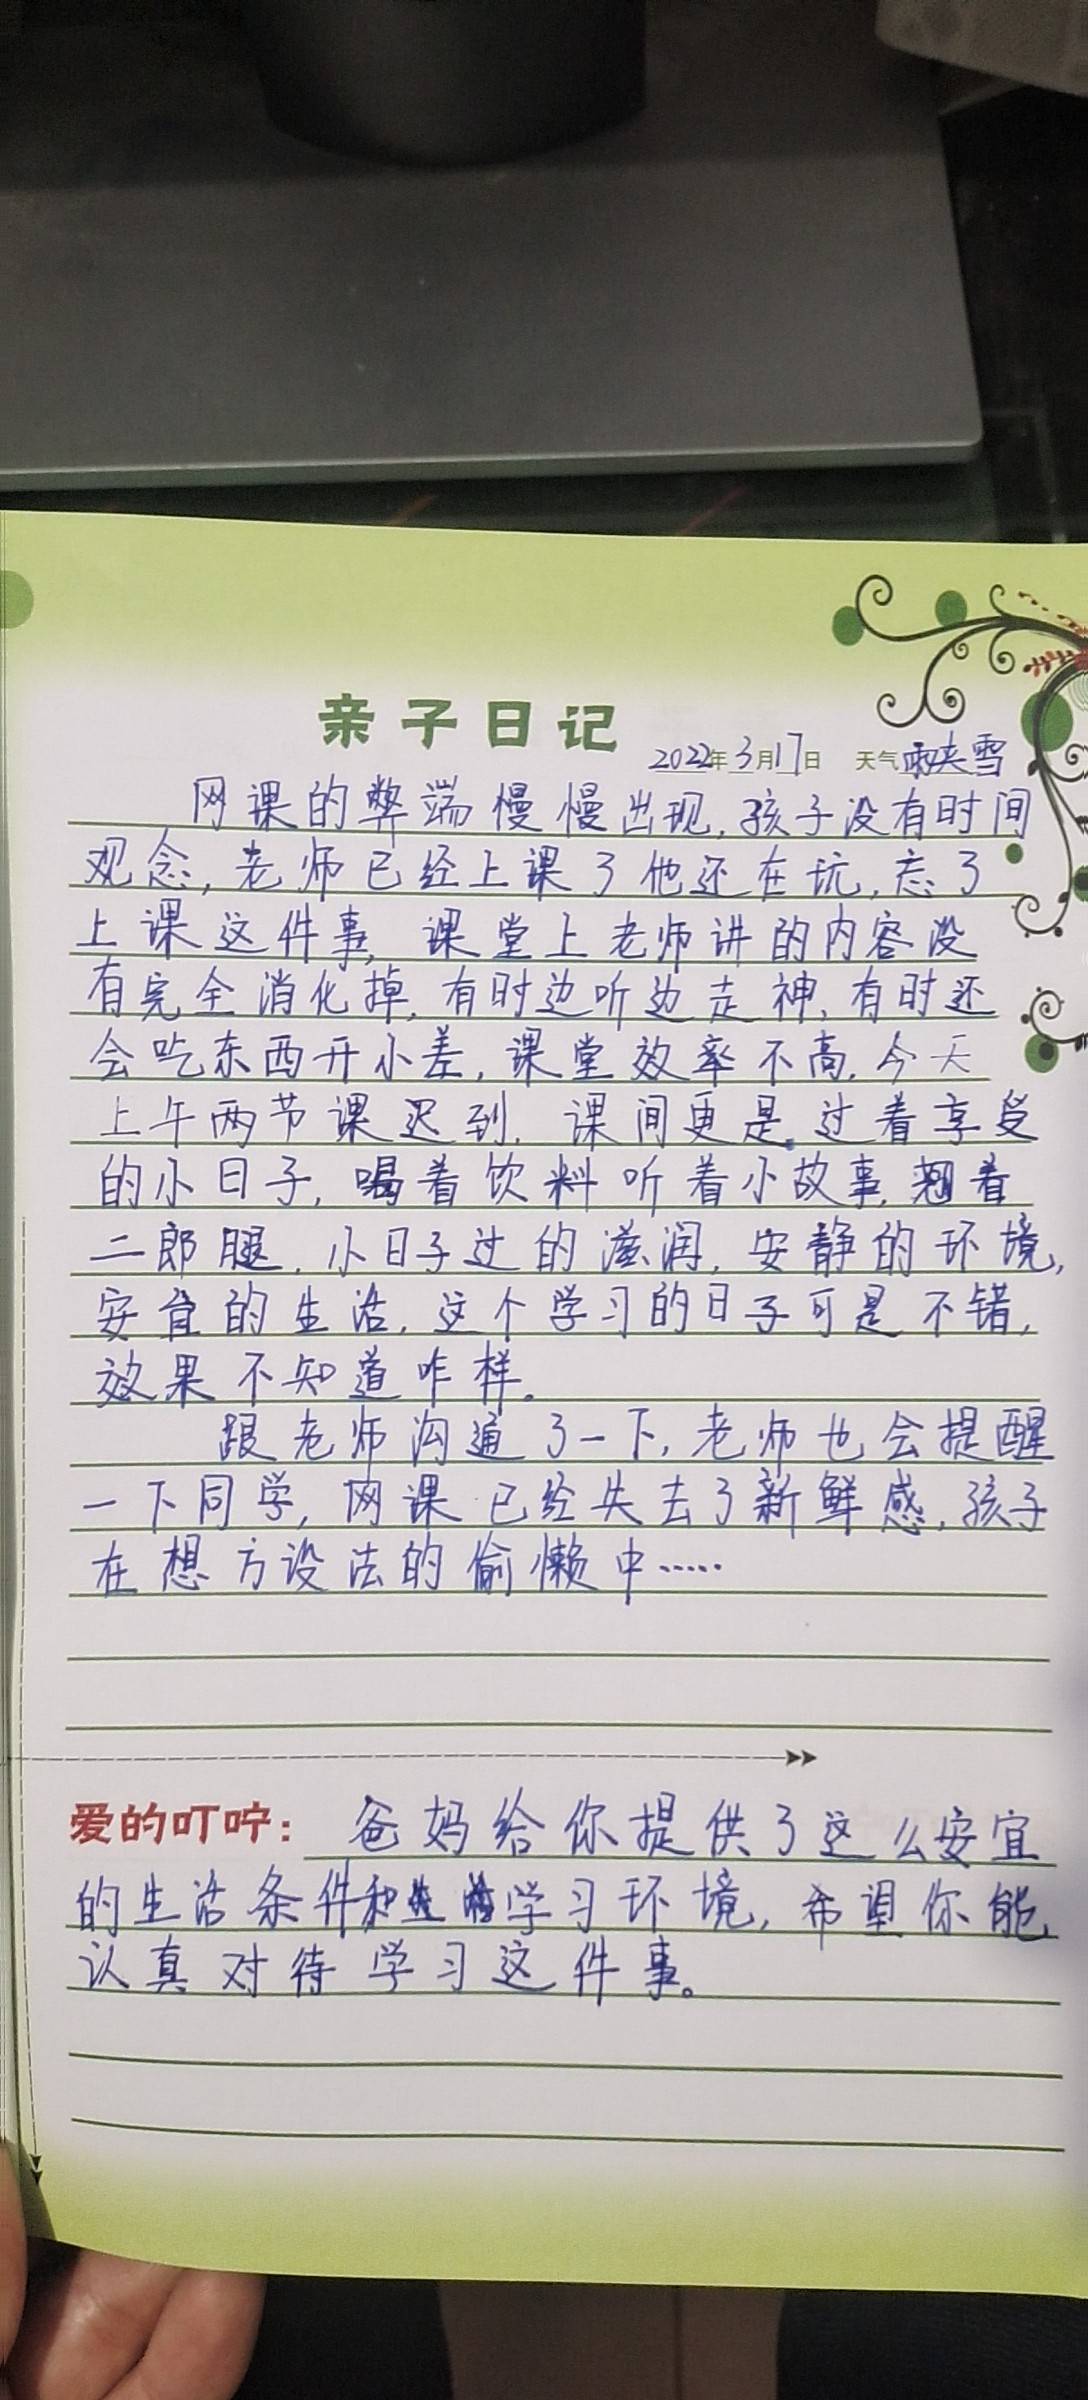 亲子日记
2022年3月17日 天气雨夹雪
网课的弊端慢慢出现,孩子没有时间
观念,老师已经上课了他还在玩,忘了
上课这件事,课堂上老师讲的内容没
有完全消化掉,有时边听边走神,有时还
会吃东西开小差,课堂效率不高,今天
上午两节课迟到,课间更是过着享受
的小日子,喝着饮料听着小故事,翘着
二郎腿,小日子过的滋润,安静的环境,
安宜的生活,这个学习的日子可是不错,
效果不知道咋样。
跟老师沟通了一下,老师也会提醒
一下同学,网课已经失去了新鲜感,孩子
在想方设法的偷懒中……
爱的叮咛:爸妈给你提供了这么安宜
的生活条件和学习环境,希望你能
认真对待学习这件事。